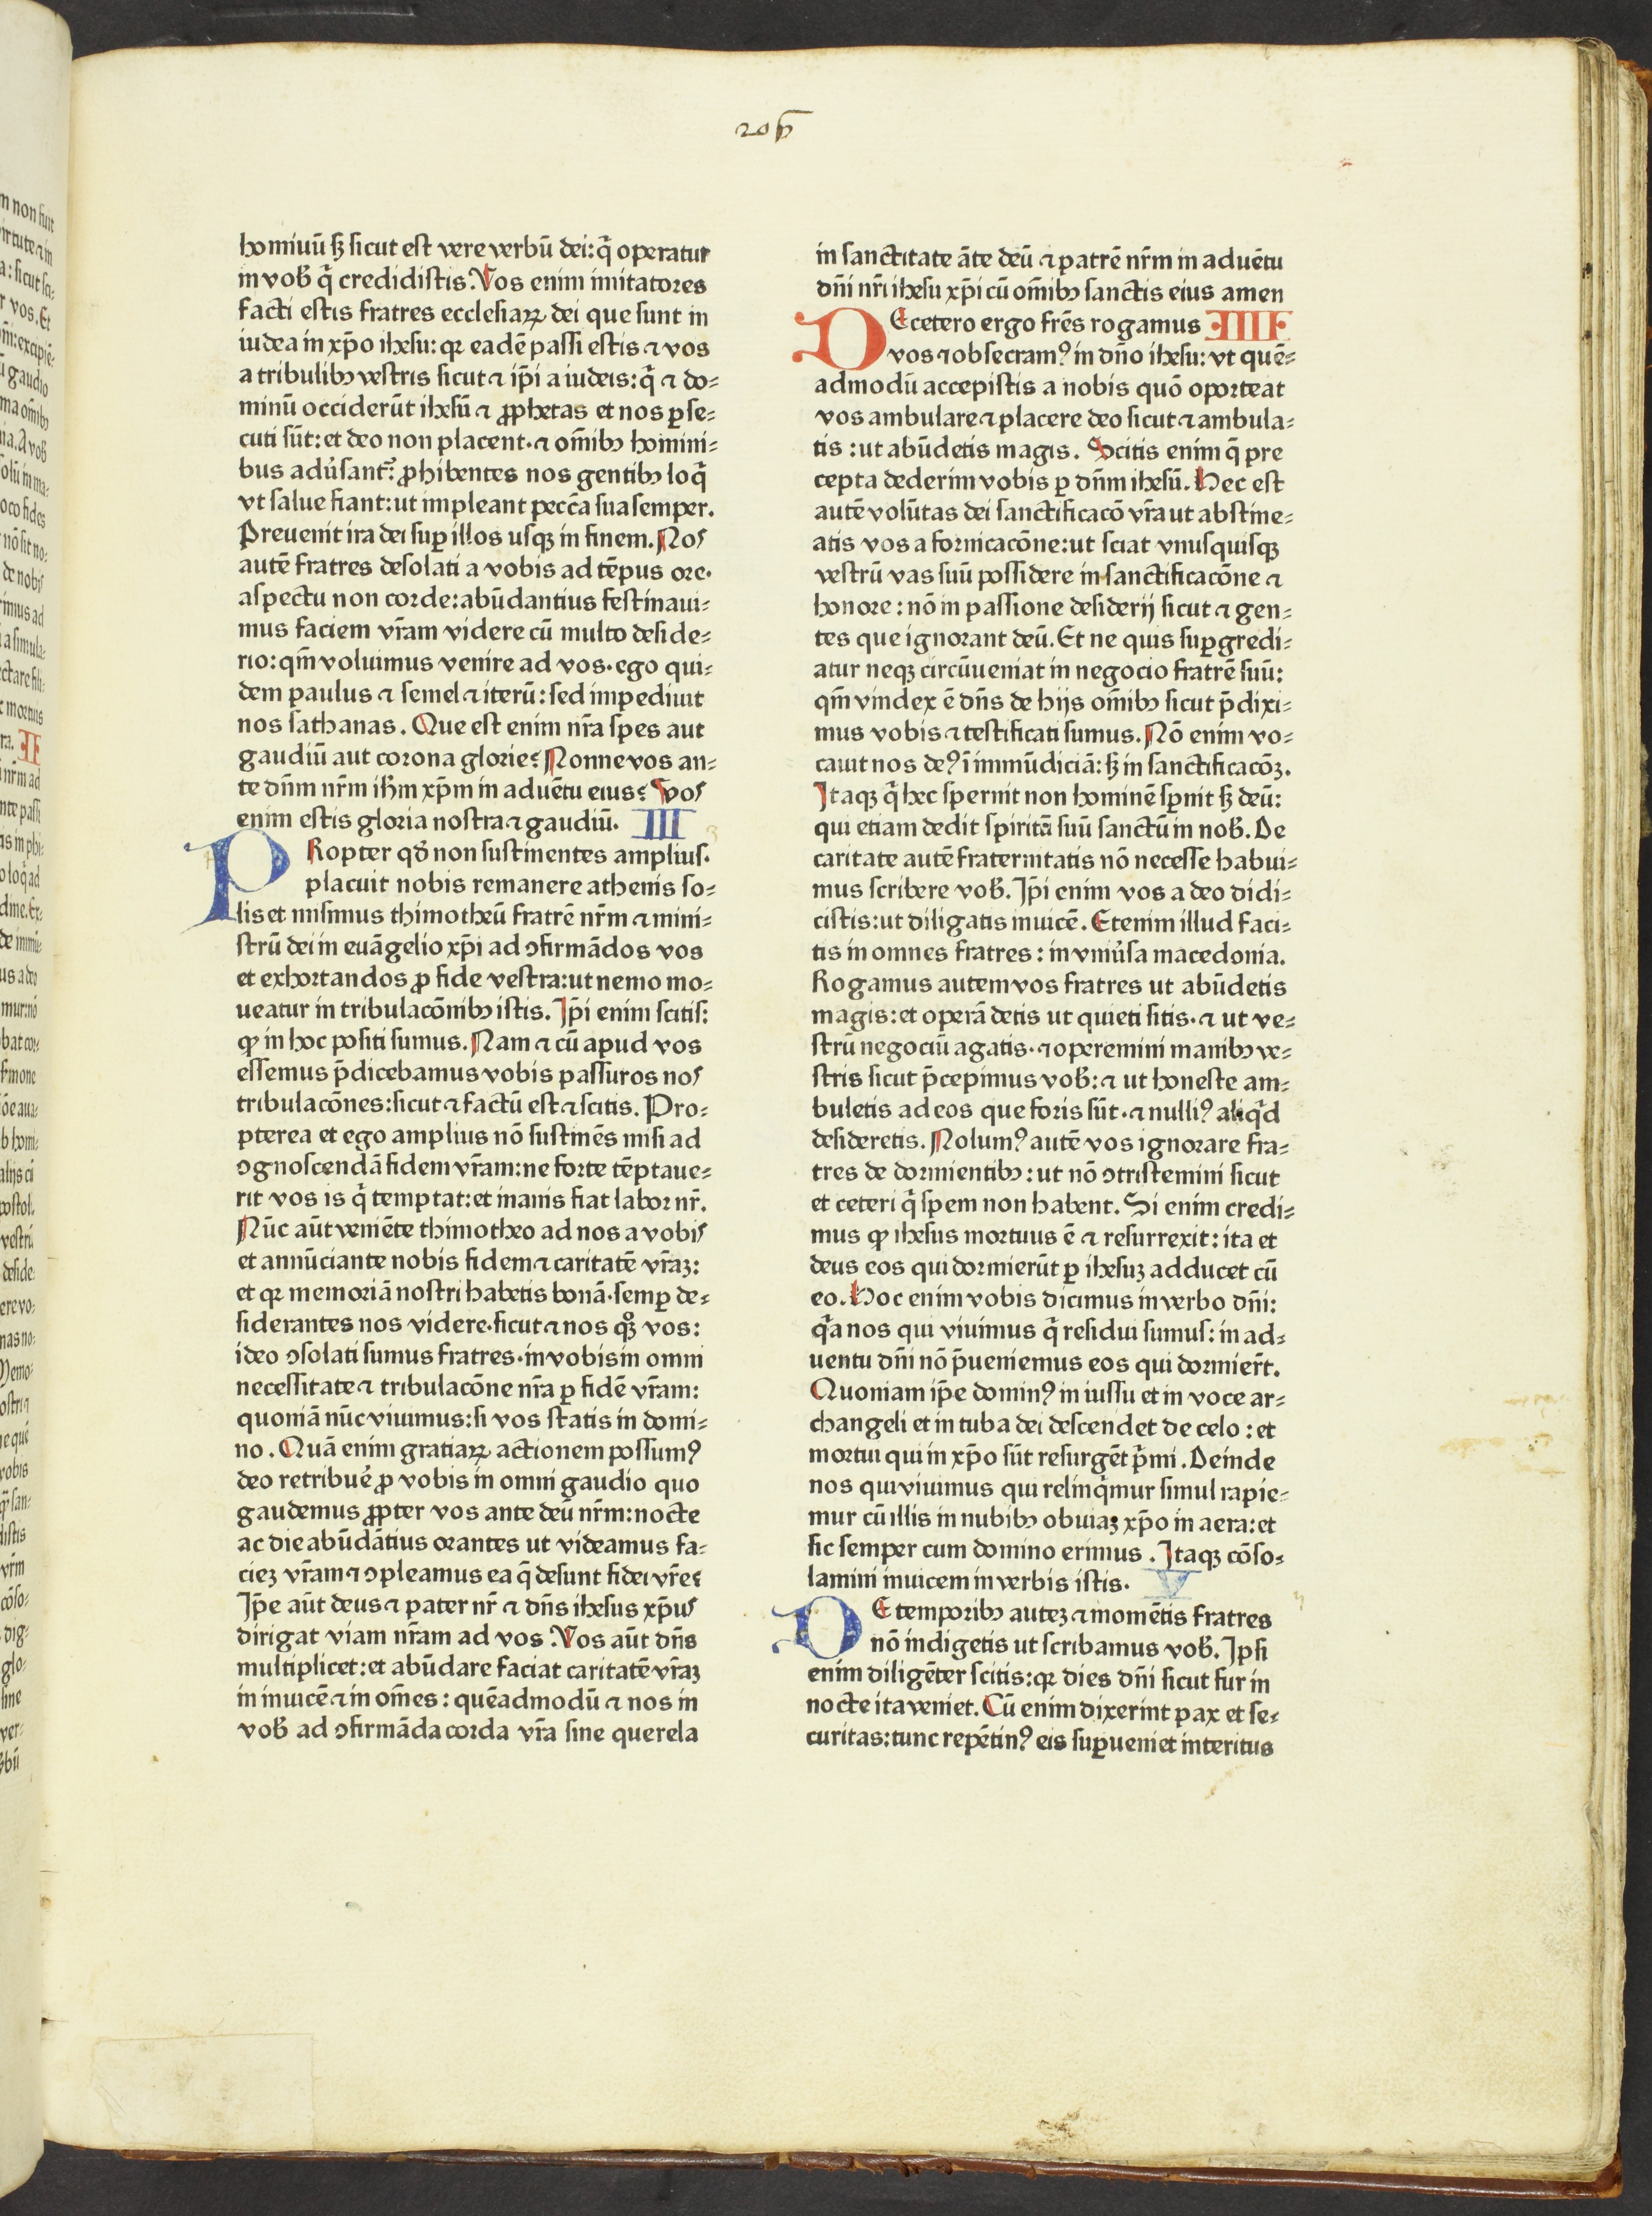 206
homiuū sꝫ sicut est vere verbū dei: q̄ operatur
in vob̄ q̄ credidistis. Vos enim imitatores
facti estis fratres ecclesiaꝝ dei que sunt in
iudea in xp̄o ihesu: qꝛ eadē passi estis ⁊ vos
a tribulibꝫ vestris sicut ⁊ ip̄i a iudeis: q̄ ⁊ do⸗
minū occiderūt ihesū ⁊ ꝓphetas et nos ꝑse⸗
cuti sūt: et deo non placent· ⁊ om̄ibꝫ homini⸗
bus adũsant᷑: ꝓhibentes nos gentibꝫ loq̄
vt salue fiant: ut impleant pecc̄a sua semper.
Preuenit ira dei suꝑ illos usqꝫ in finem. Nos
autē fratres desolati a vobis ad tēpus ore·
aspectu non corde: abūdantius festinaui⸗
mus faciem vr̄am videre cū multo deside⸗
rio: qm̄ voluimus venire ad vos· ego qui⸗
dem paulus ⁊ semel ⁊ iterū: sed impediuit
nos sathanas. Que est enim nr̄a spes aut
gaudiū aut corona glorie? Nonne vos an⸗
te dn̄m nr̄m ih̄m xp̄m in aduētu eius? Vos
enim estis gloria nostra ⁊ gaudiū. III
PRopter qd̄ non sustinentes amplius·
placuit nobis remanere athenis so⸗
lis et misimus thimotheū fratrē nr̄m ⁊ mini⸗
strū dei in euāgelio xp̄i ad ↄfirmādos vos
et exhortandos ꝓ fide vestra: ut nemo mo⸗
ueatur in tribulacōnibꝫ istis. Ip̄i enim scitis:
ꝙ in hoc positi sumus. Nam ⁊ cū apud vos
essemus p̄dicebamus vobis passuros nos
tribulacōnes: sicut ⁊ factū est ⁊ scitis. Pro⸗
pterea et ego amplius nō sustinēs misi ad
ↄgnoscendā fidem vr̄am: ne forte tēptaue⸗
rit vos is q̄ temptat: et inanis fiat labor nr̄.
Nūc aūt veniēte thimotheo ad nos a vobis
et annūciante nobis fidem ⁊ caritatē vr̄aꝫ:
et qꝛ memoriā nostri habetis bonā· semꝑ de⸗
siderantes nos videre· sicut ⁊ nos qꝫ vos:
ideo ↄsolati sumus fratres· in vobis in omni
necessitate ⁊ tribulacōne nr̄a ꝑ fidē vr̄am:
quoniā nūc viuimus: si vos statis in domi⸗
no. Quā enim gratiaꝝ actionem possumꝰ
deo retribuē ꝓ vobis in omni gaudio quo
gaudemus ꝓpter vos ante deū nr̄m: nocte
ac die abūdātius orantes ut videamus fa⸗
cieꝫ vr̄am ⁊ ↄpleamus ea q̄ desunt fidei vr̄e?
Ip̄e aūt deus ⁊ pater nr̄ ⁊ dn̄s ihesus xp̄us
dirigat viam nr̄am ad vos. Vos aūt dn̄s
multiplicet: et abūdare faciat caritatē vr̄aꝫ
in inuicē ⁊ in om̄es: quēadmodū ⁊ nos in
vob̄ ad ↄfirmāda corda vr̄a sine querela
in sanctitate āte deū ⁊ patrē nr̄m in aduētu
dn̄i nr̄i ihesu xp̄i cū om̄ibꝫ sanctis eius amen
DE cetero ergo fr̄es rogamus IIII
vos ⁊ obsecramꝰ in dn̄o ihesu: vt quē⸗
admodū accepistis a nobis quō oporteat
vos ambulare ⁊ placere deo sicut ⁊ ambula⸗
tis: ut abūdetis magis. Scitis enim q̄ pre
cepta dederim vobis ꝑ dn̄m ihesū. Hec est
autē volūtas dei sanctificacō vr̄a ut abstine⸗
atis vos a fornicacōne: ut sciat vnusquisqꝫ
vestrū vas suū possidere in sanctificacōne ⁊
honore: nō in passione desiderij sicut ⁊ gen⸗
tes que ignorant deū. Et ne quis suꝑgredi⸗
atur neqꝫ circūueniat in negocio fratrē suū:
qm̄ vindex ē dn̄s de hijs om̄ibꝫ sicut p̄dixi⸗
mus vobis ⁊ testificati sumus. Nō enim vo⸗
cauit nos deꝰ ī immūdiciā: sꝫ in sanctificacōꝫ.
Itaqꝫ q̄ hec spernit non hominē sꝑnit sꝫ deū:
qui etiam dedit spiritū suū sanctū in nob̄. De
caritate autē fraternitatis nō necesse habui⸗
mus scribere vob̄. Ip̄i enim vos a deo didi⸗
cistis: ut diligatis inuicē. Etenim illud faci⸗
tis in omnes fratres: in vniũsa macedonia.
Rogamus autem vos fratres ut abūdetis
magis: et operā detis ut quieti sitis· ⁊ ut ve⸗
strū negociū agatis· ⁊ operemini manibꝫ ve⸗
stris sicut p̄cepimus vob̄: ⁊ ut honeste am⸗
buletis ad eos que foris sūt· ⁊ nulliꝰ aliq̄d
desideretis. Nolumꝰ autē vos ignorare fra⸗
tres de dormientibꝫ: ut nō ↄtristemini sicut
et ceteri q̄ spem non habent. Si enim credi⸗
mus ꝙ ihesus mortuus ē ⁊ resurrexit: ita et
deus eos qui dormierūt ꝑ ihesuꝫ adducet cū
eo. Hoc enim vobis dicimus in verbo dn̄i:
q̄a nos qui viuimus q̄ residui sumus: in ad⸗
uentu dn̄i nō p̄ueniemus eos qui dormier̄t.
Quoniam ip̄e dominꝰ in iussu et in voce ar⸗
changeli et in tuba dei descendet de celo: et
mortui qui in xp̄o sūt resurgēt p̄mi. Deinde
nos qui viuimus qui relinq̄mur simul rapie⸗
mur cū illis in nubibꝫ obuiaꝫ xp̄o in aera: et
sic semper cum domino erimus. Itaqꝫ cōso⸗
lamini inuicem in verbis istis. V
DE temporibꝫ auteꝫ ⁊ momētis fratres
nō indigetis ut scribamus vob̄. Ipsi
enim diligēter scitis: qꝛ dies dn̄i sicut fur in
nocte ita veniet. Cū enim dixerint pax et se⸗
curitas: tunc repētinꝰ eis suꝑueniet interitus